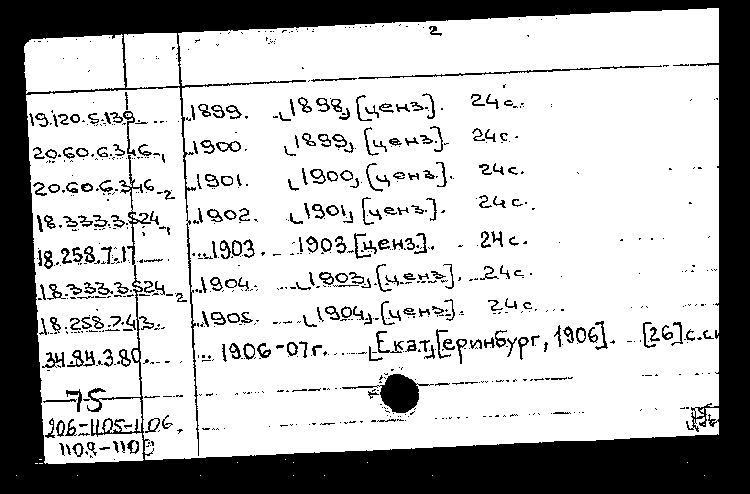 2
19.120.5.139. 1899. [1898] [ценз.]. 24с.
20.60.6.346-1 1900. [1899] [ценз.]. 24с.
20.60.6.346-2 1901. [1900] [ценз.]. 24с.
18.333.3.524-1 1902. [1901] [ценз.]. 24с.
18.258.7.17 1903. 1903 [ценз.]. 24с.
18.333.3.524-2 1904. [1903] [ценз.]. 24с.
18.258.7.43. 1905. [1904] [ценз.]. 24с.
34.84.3.80. 1906-07г. [Екат][еринбург, 1906]. [26]с.
75
206-1105-1106,
1108-1109